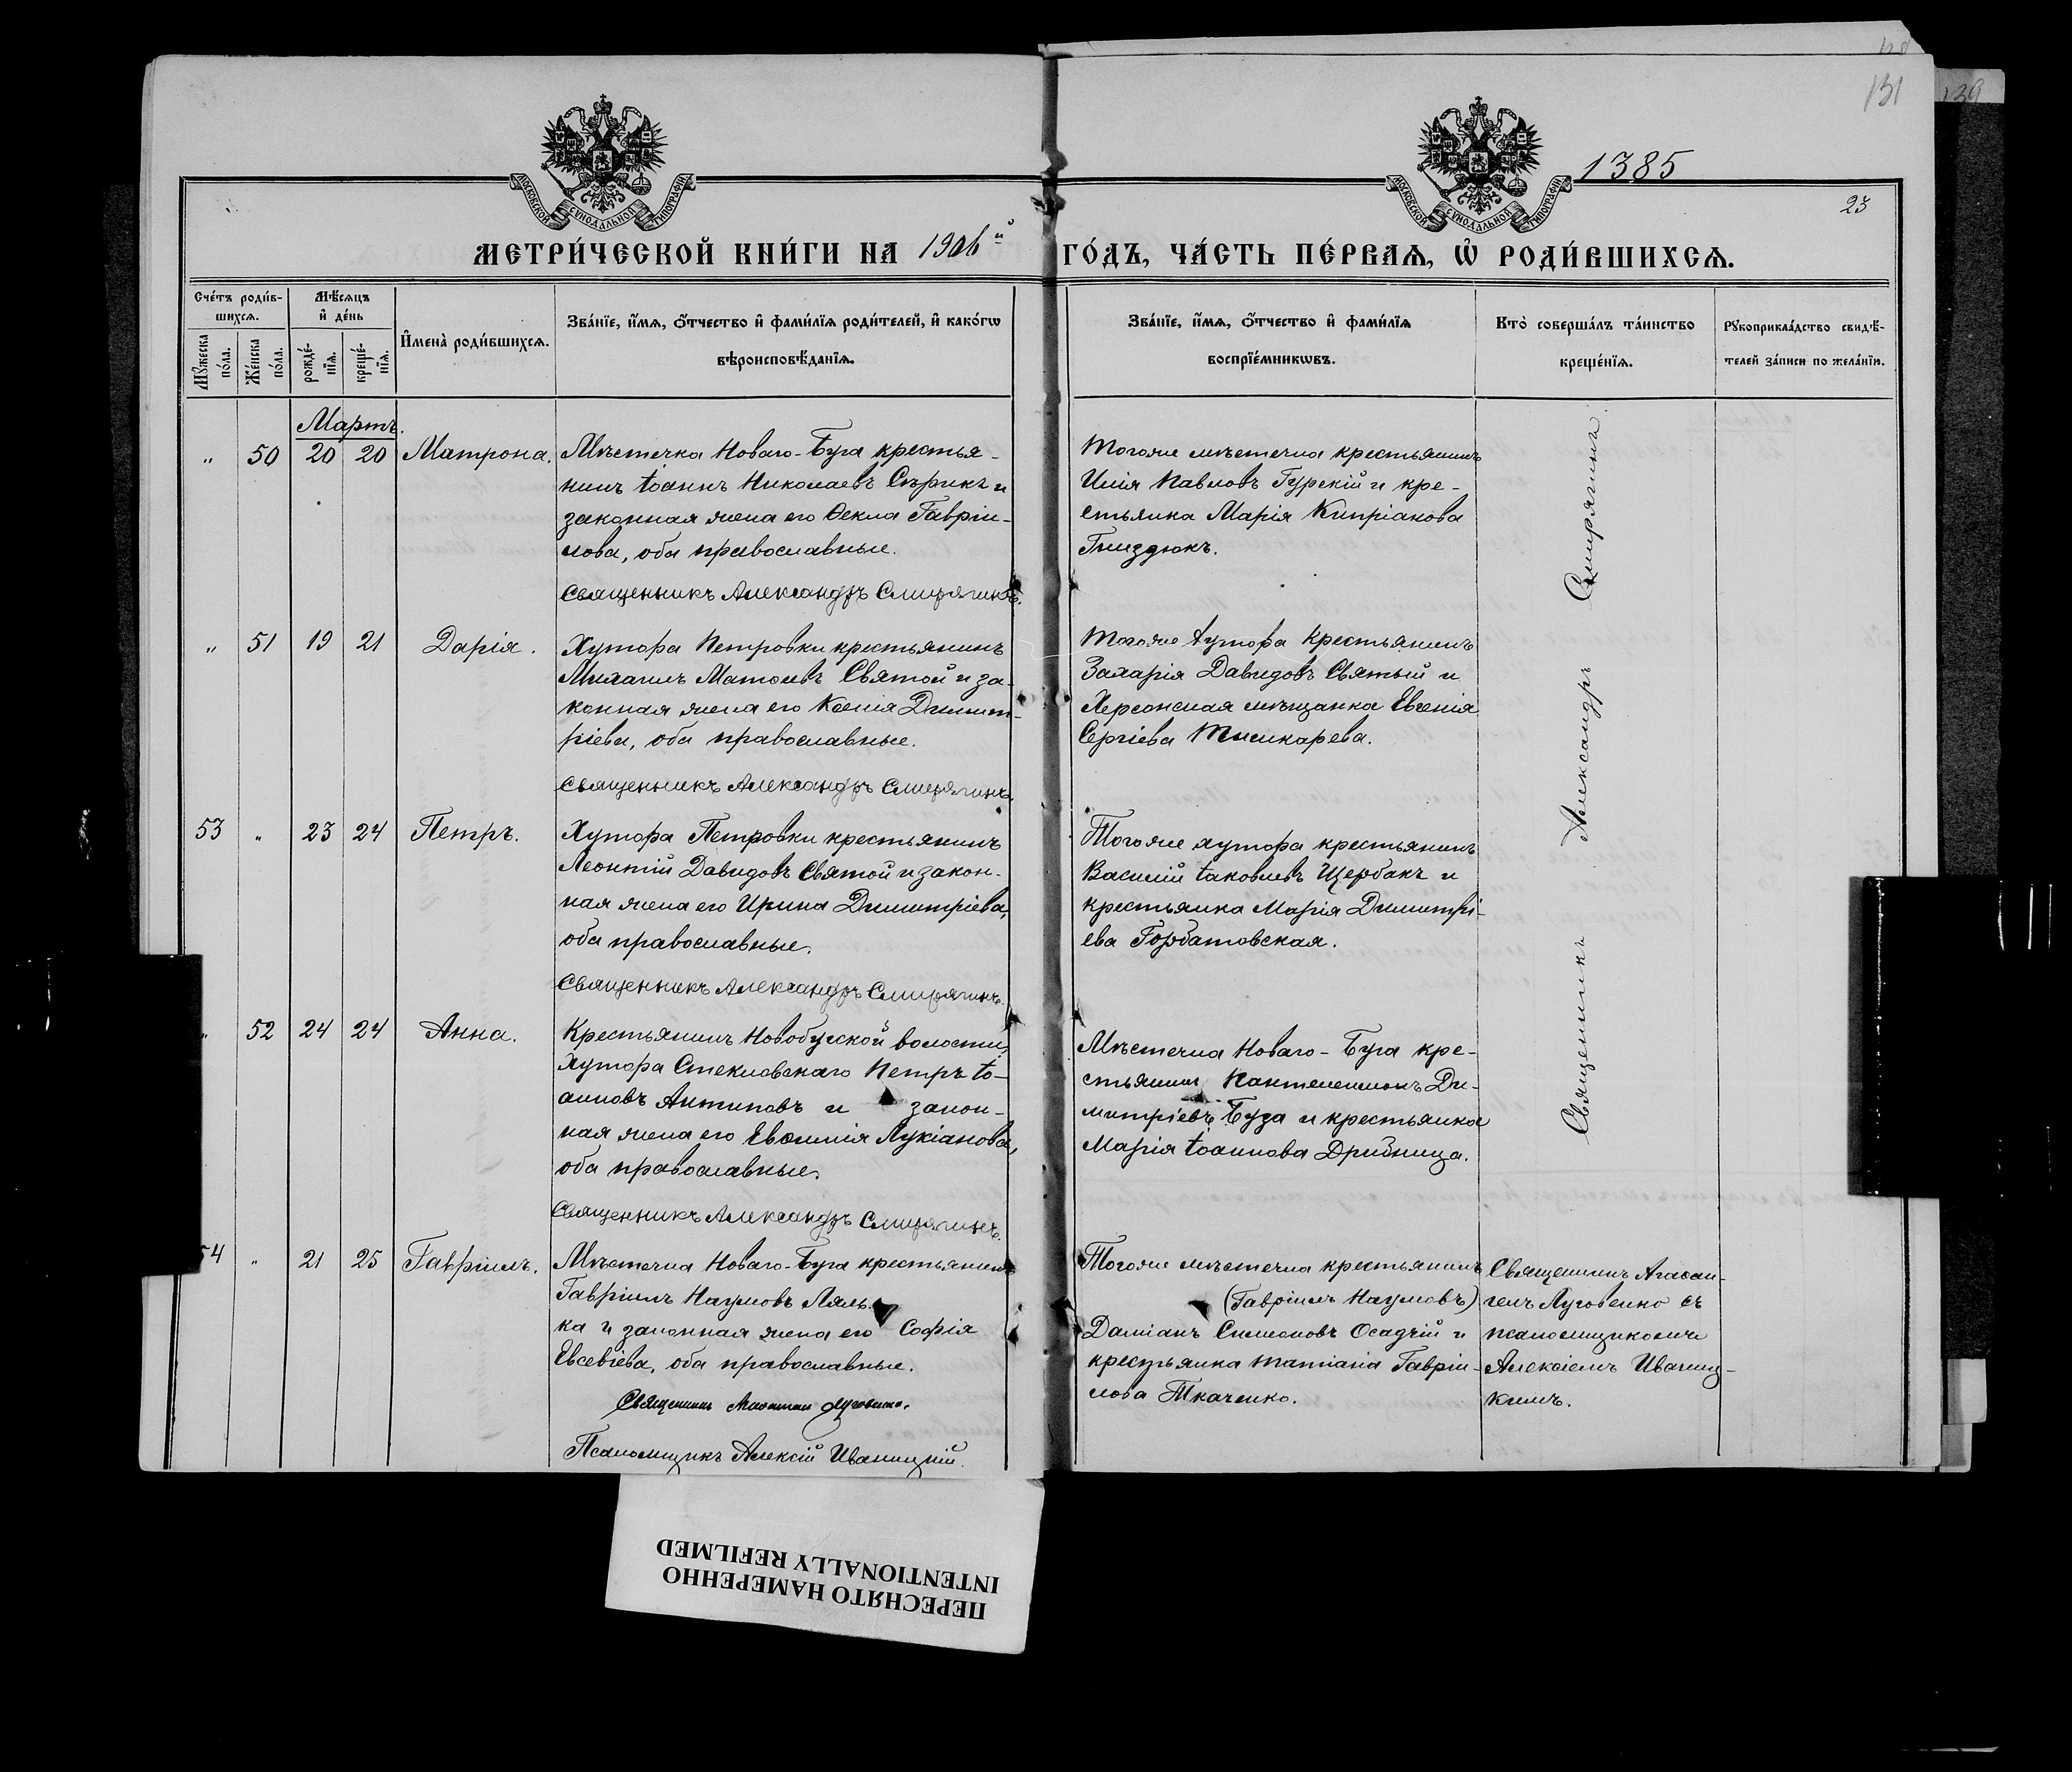 131
139
1385
23
МОСКОВСКОЙ СѴНОДАЛЬНОЙ ТИПОГРАФІИ
МОСКОВСКОЙ СѴНОДАЛЬНОЙ ТИПОГРАФІИ
МЕТРИ́ЧЕСКОЙ КНИ́ГИ НА 1906й ГО́ДЪ, ЧА́СТЬ ПЕ́РВАѦ, Ѡ҆ РОДИ́ВШИХСѦ.
Сче́тъ роди́в-
шихсѧ.
Мꙋ́жеска по́ла.
Же́нска по́ла.
Мѣ́сѧцъ
и҆ де́нь
рожде́-
нїѧ.
креще́-
нїѧ.
И҆мена̀ роди́вшихсѧ.
Зва́нїе, и҆́мѧ, ѻ҆́тчество и҆ фами́лїѧ роди́телей, и҆ како́гѡ
вѣроисповѣ́данїѧ.
Зва́нїе, и҆́мѧ, ѻ҆́тчество и҆ фами́лїѧ
воспрїе́мникѡвъ.
Кто̀ соверша́лъ та́инство
креще́нїѧ.
Рꙋкоприкла́дство свидѣ́-
телей за́писи по жела́нїю.
Мартъ.
" 50 20 20 Матрона.
Мѣстечка Новаго-Буга крестья-
нинъ Іоаннъ Николаевъ Сѣрикъ и
законная жена его Ѳекла Гавріи-
лова, оба православные.
Священникъ Александръ Смирягинъ.
Тогоже мѣстечка крестьянинъ
Илія Павловъ Гурскій и кре-
стьянка Марія Кипріанова
Гниздюкъ.
" 51 19 21 Дарія.
Хутора Петровки крестьянинъ
Михаилъ Матѳіевъ Святой и за-
конная жена его Ксенія Димит-
ріева, оба православные.
Священникъ Александръ Смирягинъ.
Тогоже хутора крестьянинъ
Захарія Давидовъ Святый и
Херсонская мѣщанка Евгенія
Сергіева
53 " 23 24 Петръ.
Хутора Петровки крестьянинъ
Леонтій Давидовъ Святой и закон-
ная жена его Ирина Димитріева,
оба православные.
Священникъ Александръ Смирягинъ.
Тогоже хутора крестьянинъ
Василій Іаковлевъ Щербакъ и
крестьянка Марія Димитрі-
ева Горбатовская.
" 52 24 24 Анна.
Крестьянинъ Новобугской волости,
Хутора Стекловскаго Петръ Іо-
анновъ Антиповъ и закон-
ная жена его Евѳимія Лукіанова,
оба православные.
Священникъ Александръ Смирягинъ.
Мѣстечка Новаго-Буга кре-
стьянинъ Пантелеимонъ Ди-
митріевъ Буза и крестьянка
Марія Іоаннова Дрибница.
Священникъ Александръ Смирягинъ
54 " 21 25 Гавріилъ.
Мѣстечка Новаго-Буга крестьянинъ
Гавріилъ Наумовъ Ляль-
ка и законная жена его Софія
Евсевіева, оба православные.
Священникъ Луговенко.
Псаломщикъ Алексій Иваницкій.
Тогоже мѣстечка крестьянинъ
(Гавріилъ Наумовъ)
Даміанъ Симеоновъ Осадчій и
крестьянка Татіана Гавріи-
лова Ткаченко.
Священникъ Агаѳан-
гелъ Луговенко съ
псаломщикомъ
Алексіемъ Иваниц-
кимъ.
ПЕРЕСНЯТО НАМЕРЕННО
INTENTIONALLY REFILMED